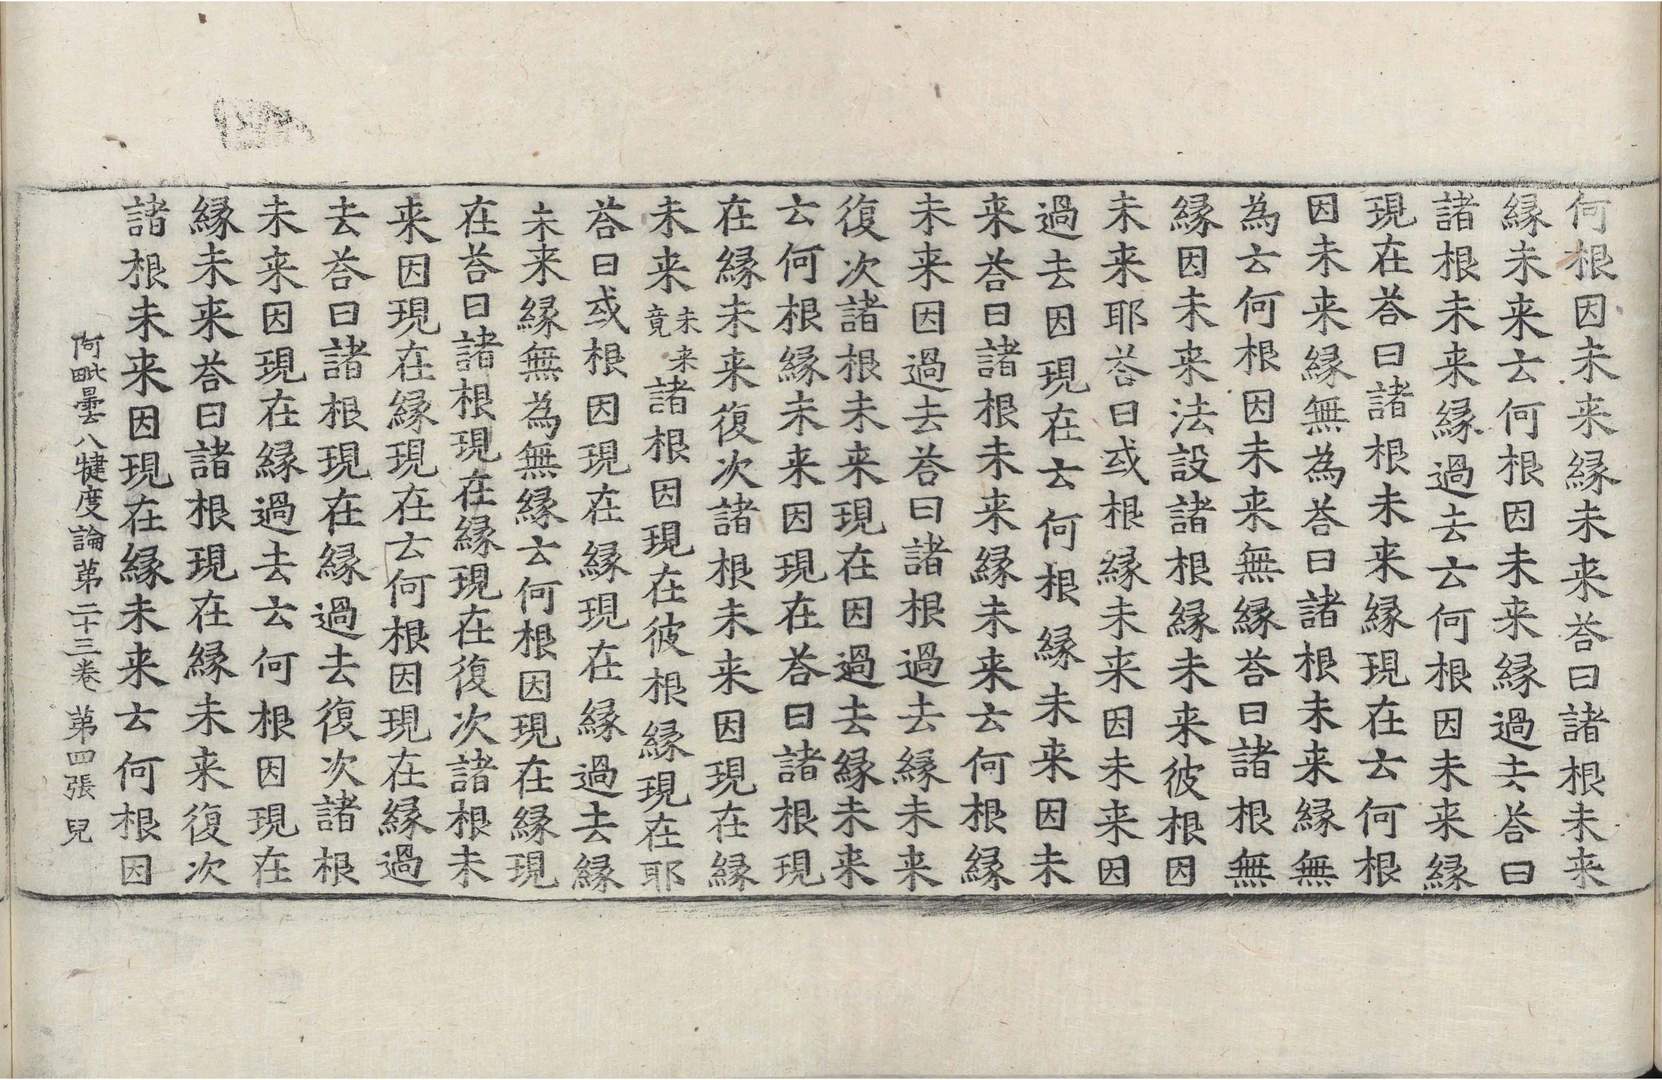 何根因未来縁未来荅曰諸根未来
縁未来云何根因未来縁過去荅曰
諸根未来縁過去云何根因未来縁
現在荅曰諸根未来縁現在云何根
因未来縁無為荅曰諸根未来縁無
為云何根因未来無縁荅曰諸根無
縁因未来法設諸根縁未来彼根因
未来耶荅曰或根縁未来因未来因
過去因現在云何根縁未来因未
来荅曰諸根未来縁未来云何根縁
未来因過去荅曰諸根過去縁未来
復次諸根未来現在因過去縁未来
云何根縁未来因現在荅曰諸根現
在縁未来復次諸根未来因現在縁
未来未来竟諸根因現在彼根縁現在耶
荅曰或根因現在縁現在縁過去縁
未来縁無為無縁云何根因現在縁現
在荅曰諸根現在縁現在復次諸根未
来因現在縁現在云何根因現在縁過
去荅曰諸根現在縁過去復次諸根
未来因現在縁過去云何根因現在
縁未来荅曰諸根現在縁未来復次
諸根未来因現在縁未来云何根因
阿毗曇八犍度論第二十三卷 第四張 兒